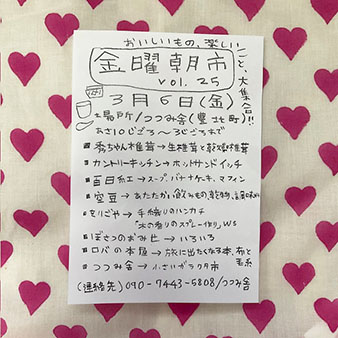 おいしいもの、楽しいこと、大集合!!
金曜朝市
vol. 25
3月6日(金)
場所/つつみ舎(豊北町)
あさ10じごろ〜3じごろまで
■秀ちゃん椎茸→生椎茸と乾燥椎茸
■カントリーキッチン→ホットサンドイッチ
■百日紅→スープ、バナナケーキ、マフィン
■空豆→あたたかい飲みもの、乾物、調味料
■もりごや→手織りのハンカチ
「木の香りのスプレー作り」WS
■ぼさつのおみせ→いろいろ
■ロバの本屋→旅に出たくなる本、布と毛糸
■つつみ舎→小さいガラクタ市
(連絡先)090-7443-5808/つつみ舎